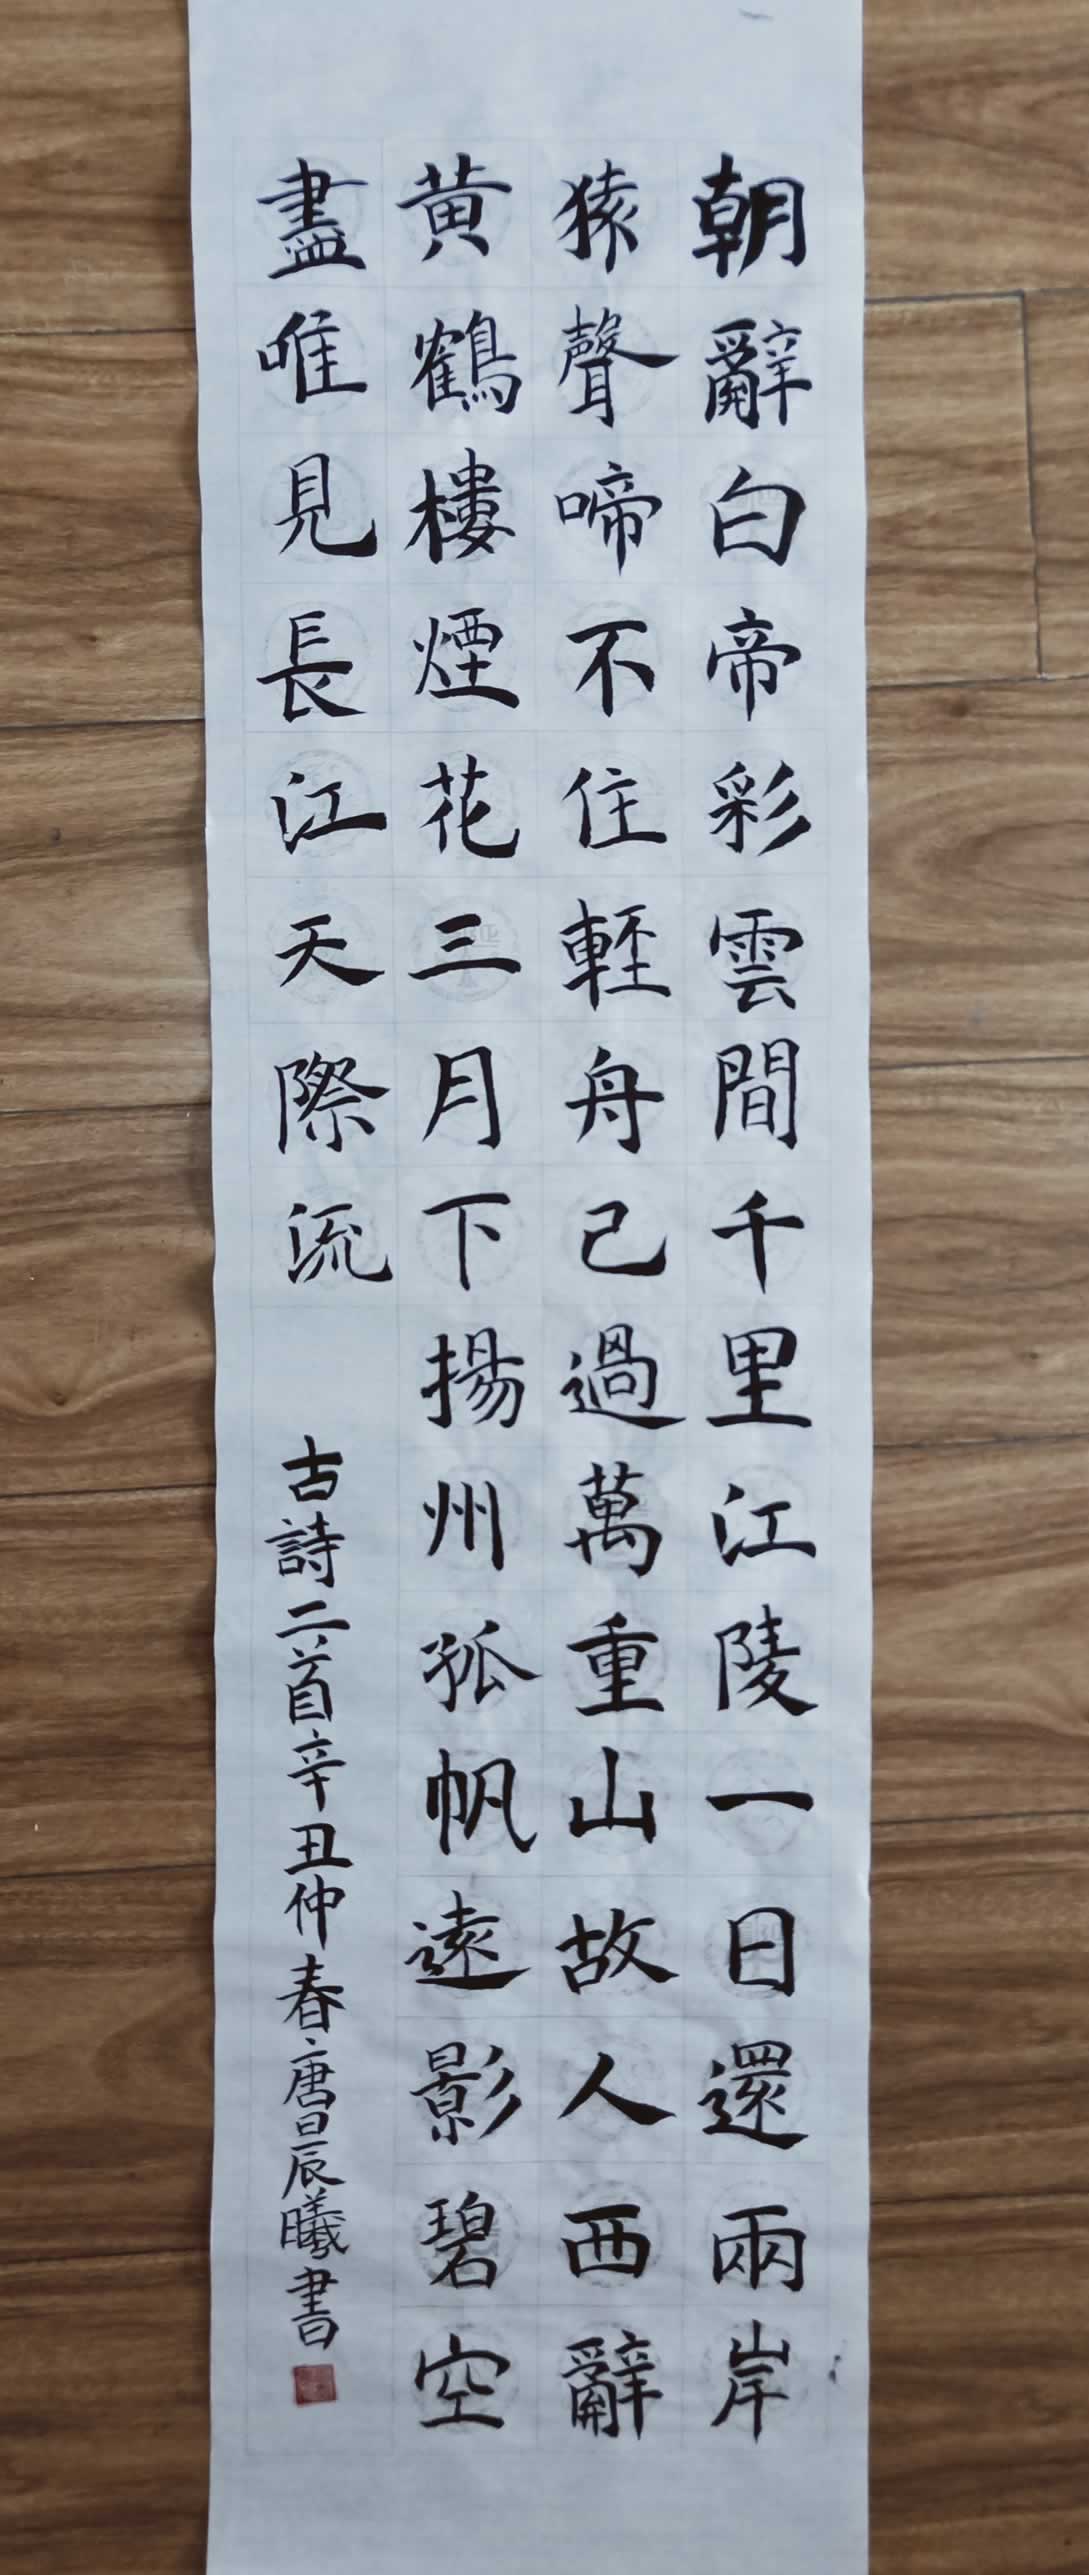 朝辭白帝彩雲間千里江陵一日還兩岸
猿聲啼不住輕舟已過萬重山故人西辭
黃鶴樓煙花三月下揚州孤帆遠影碧空
盡唯見長江天際流
古詩二首辛丑仲春唐晨曦書